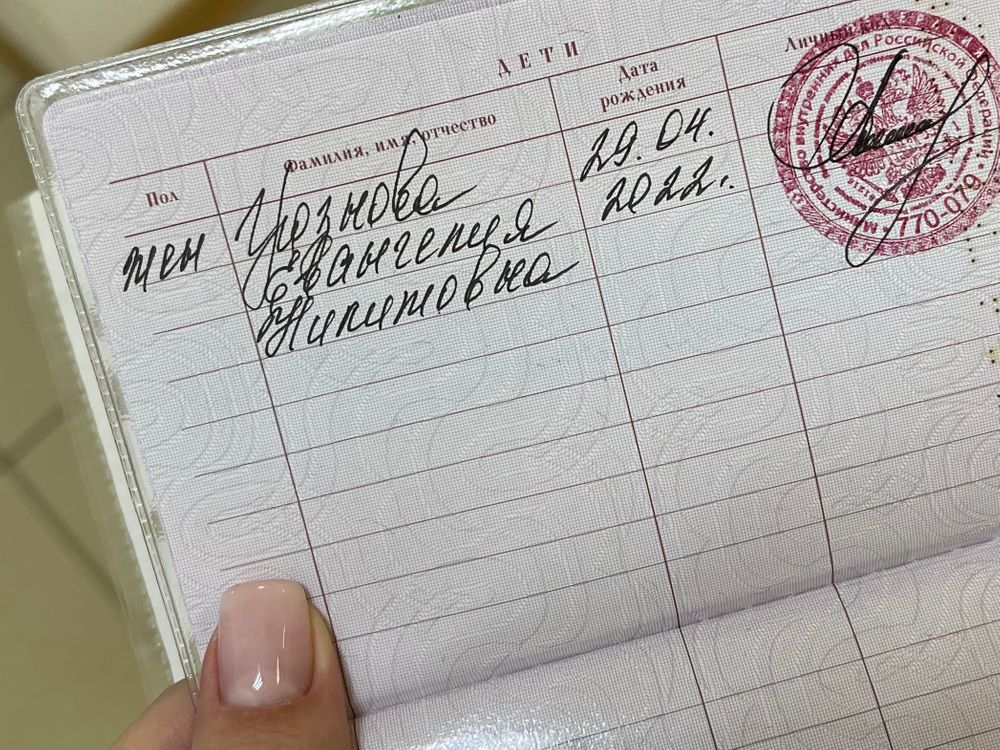 ДЕТИ
Пол
Фамилия, имя, отчество
Дата
рождения
Личный код
жен
29.04.
2022.
Евангелия
Никитовна
Министерство внутренних дел Российской Федерации
770-079